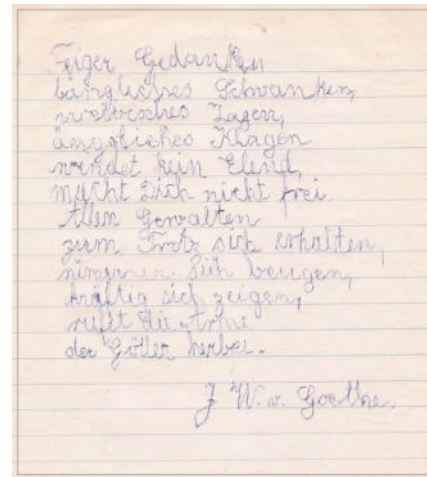 Feiger Gedanken
bängliches Schwanken,
weibisches Zagen,
ängstliches Klagen
wendet kein Elend,
macht dich nicht frei.
Allen Gewalten
zum Trotz sich erhalten,
nimmer sich beugen,
kräftig sich zeigen,
rufet die Arme
der Götter herbei.
J. W. v. Goethe.